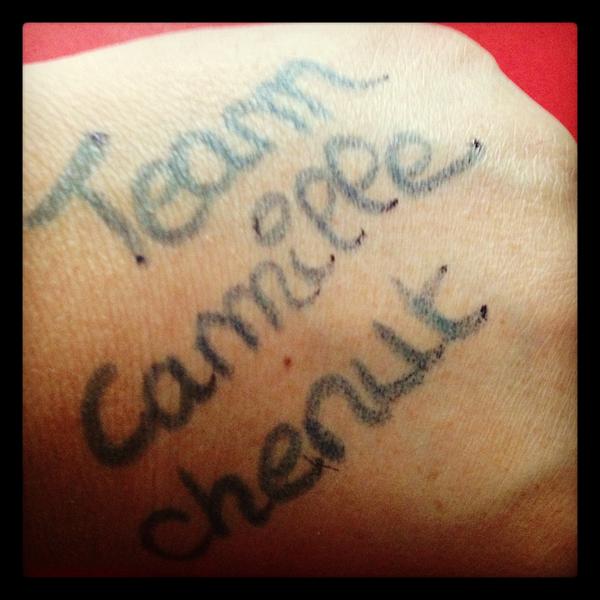 Team
Camille
chenut